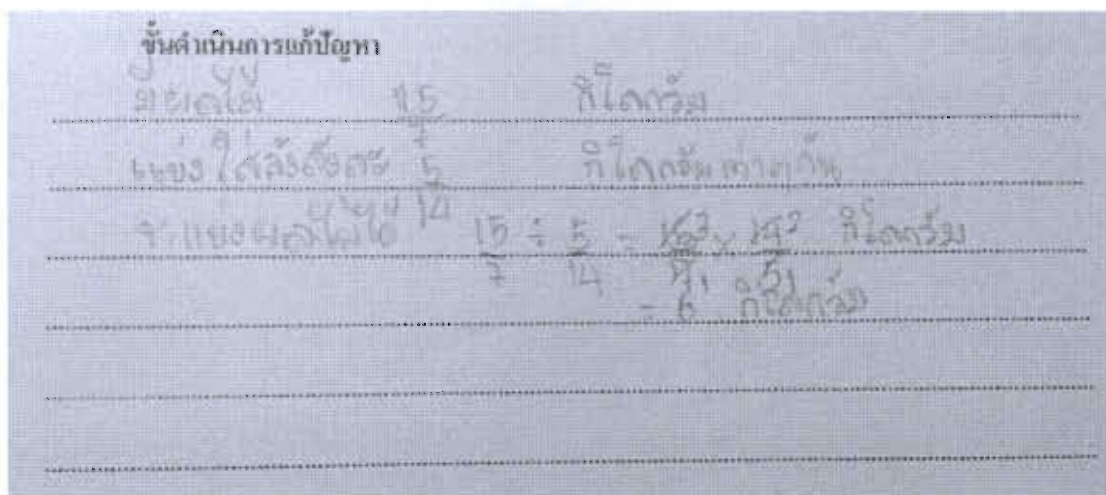 ขั้นดำเนินการแก้ปัญหา
มีผลไม้ 15/7 กิโลกรัม
แบ่งใส่ลังลังละ 5/14 กิโลกรัมเท่าๆกัน
จะแบ่งผลไม้ได้ 15/7 ÷ 5/14 = 15³/7₁ × 14²/5₁ กิโลกรัม
= 6 กิโลกรัม